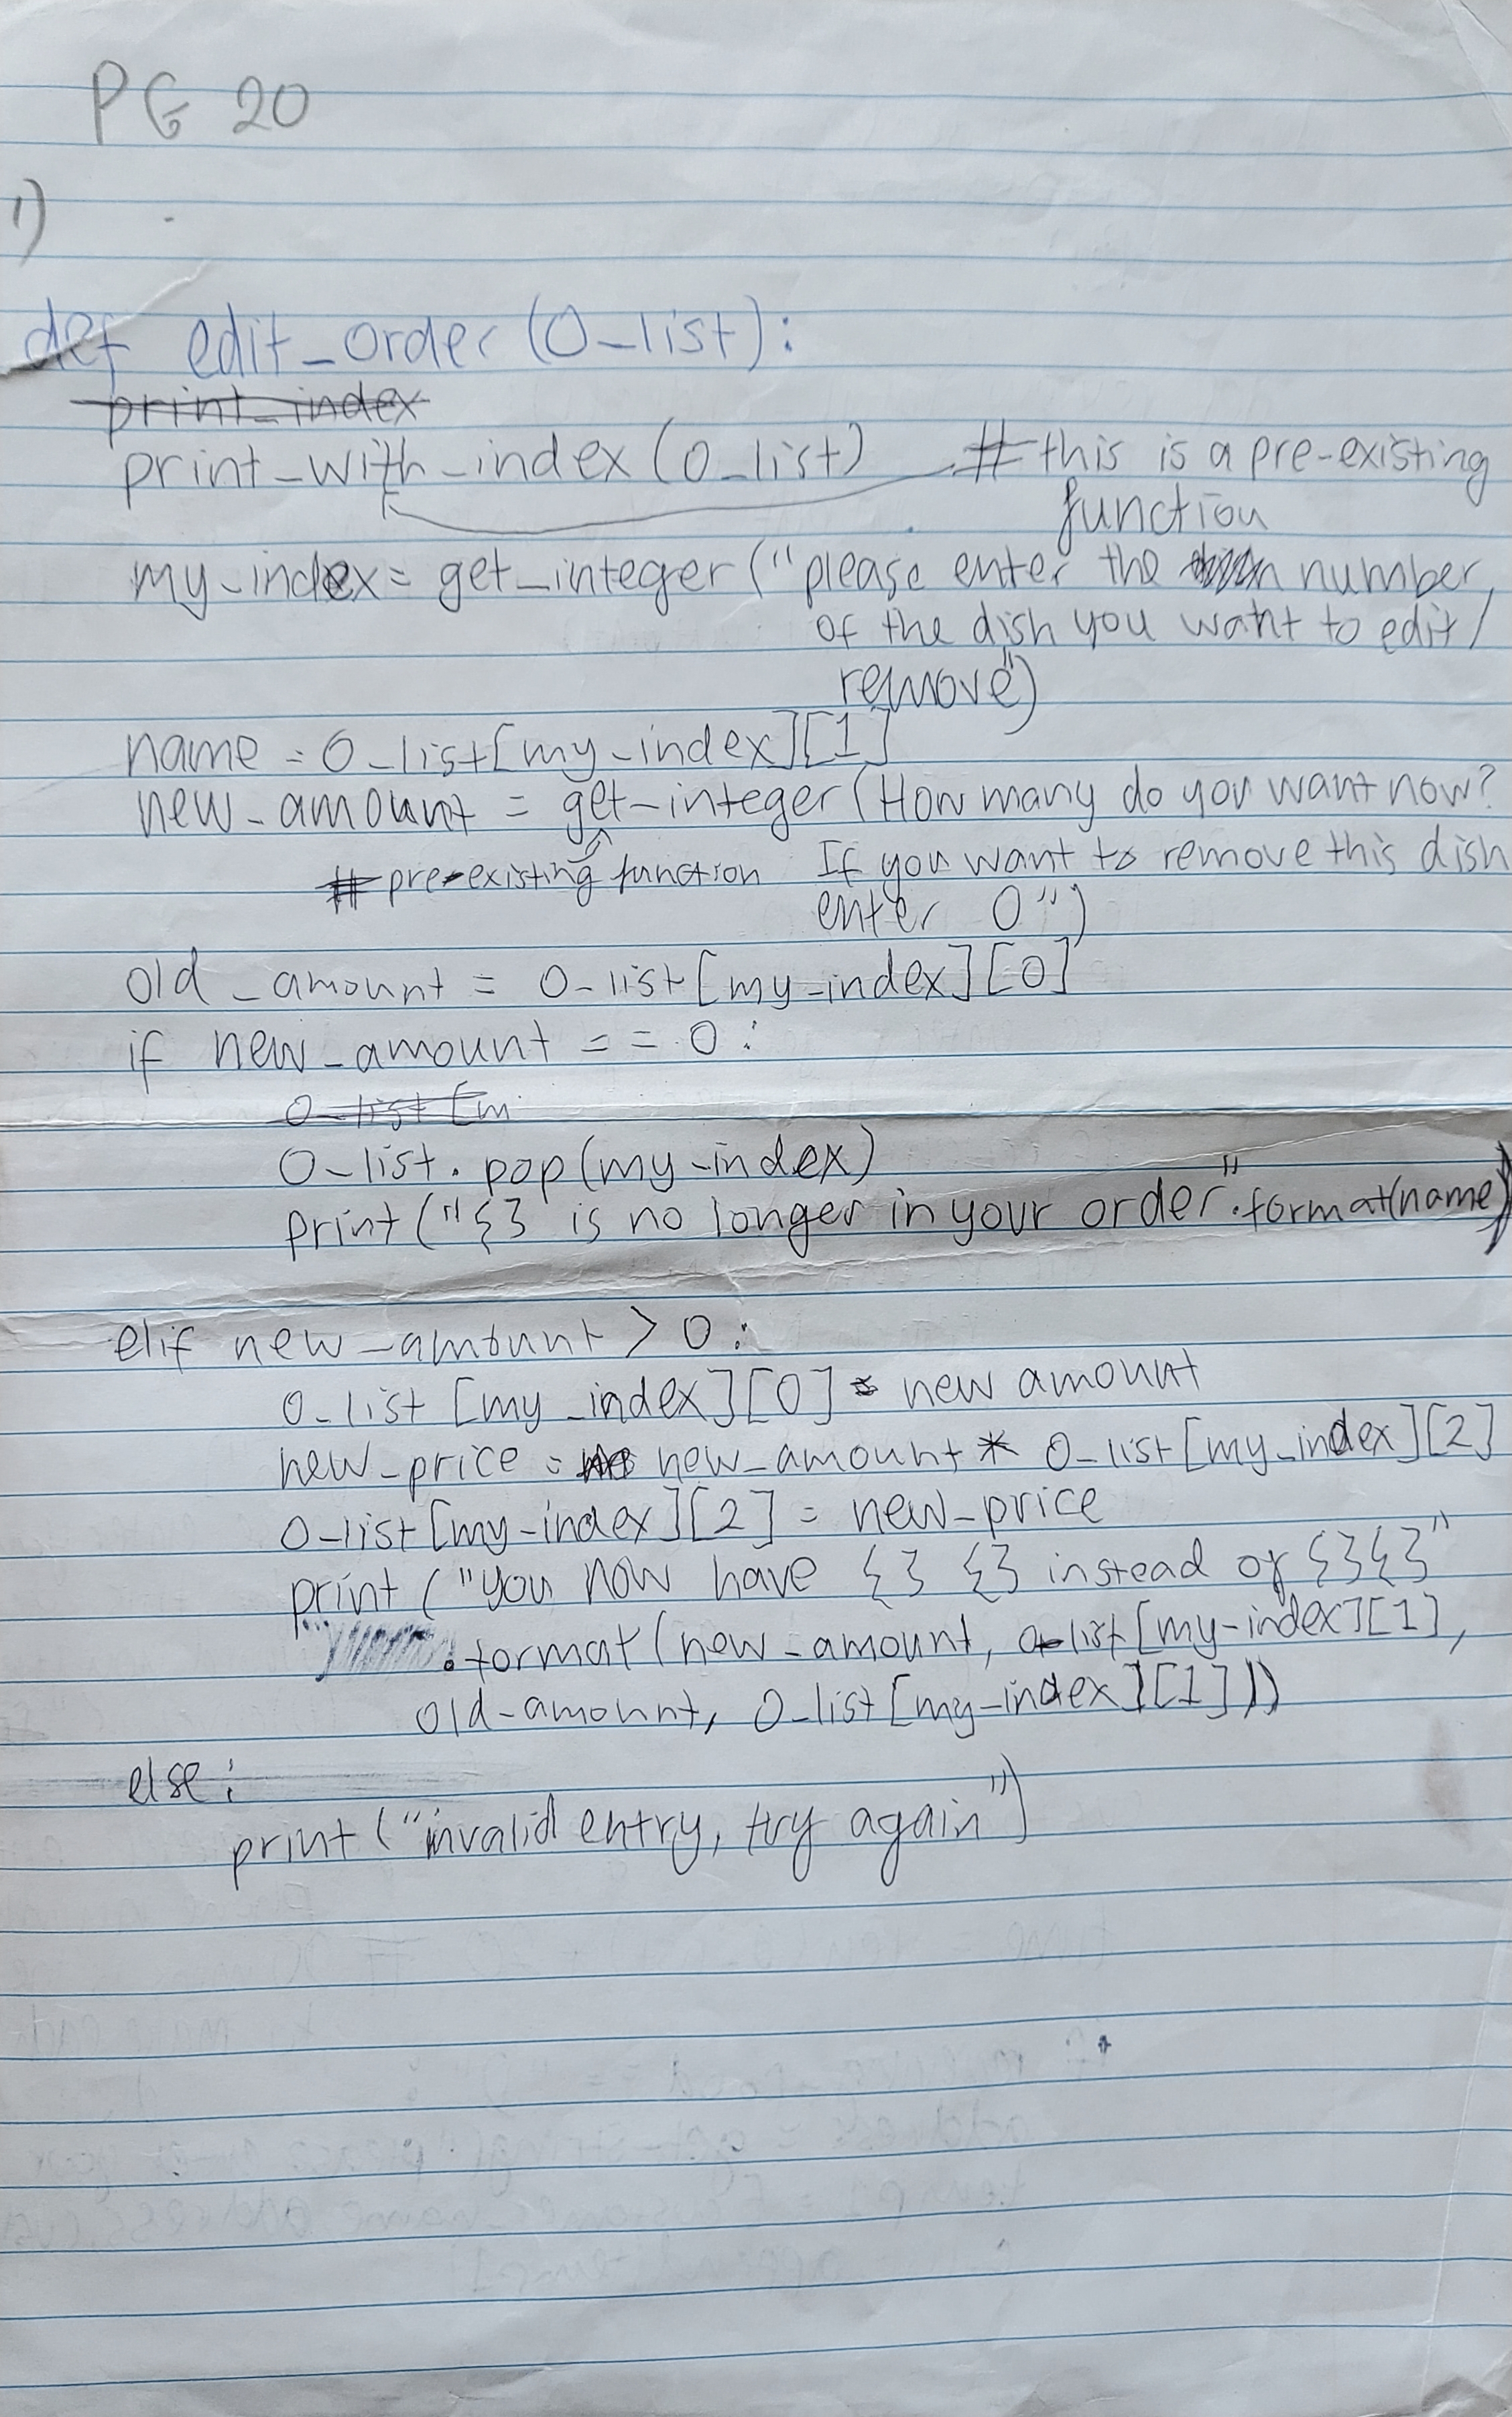 PG 20
1)
def edit_order(O_list):
print_index
print_with_index(O_list) # this is a pre-existing
function
my_index = get_integer("please enter the number
of the dish you want to edit/
remove")
name = O_list[my_index][1]
new_amount = get_integer(How many do you want now?
# pre-existing function If you want to remove this dish
enter 0")
old_amount = O_list[my_index][0]
if new_amount == 0:
O_list[m
O_list.pop(my_index)
print("{} is no longer in your order".format(name))
elif new_amount > 0:
O_list[my_index][0] = new amount
new_price = new_amount * O_list[my_index][2]
O_list[my_index][2] = new_price
print("you now have {} {} instead of {}{}"
.format(new_amount, O_list[my_index][1],
old_amount, O_list[my_index][1]))
else:
print("invalid entry, try again")